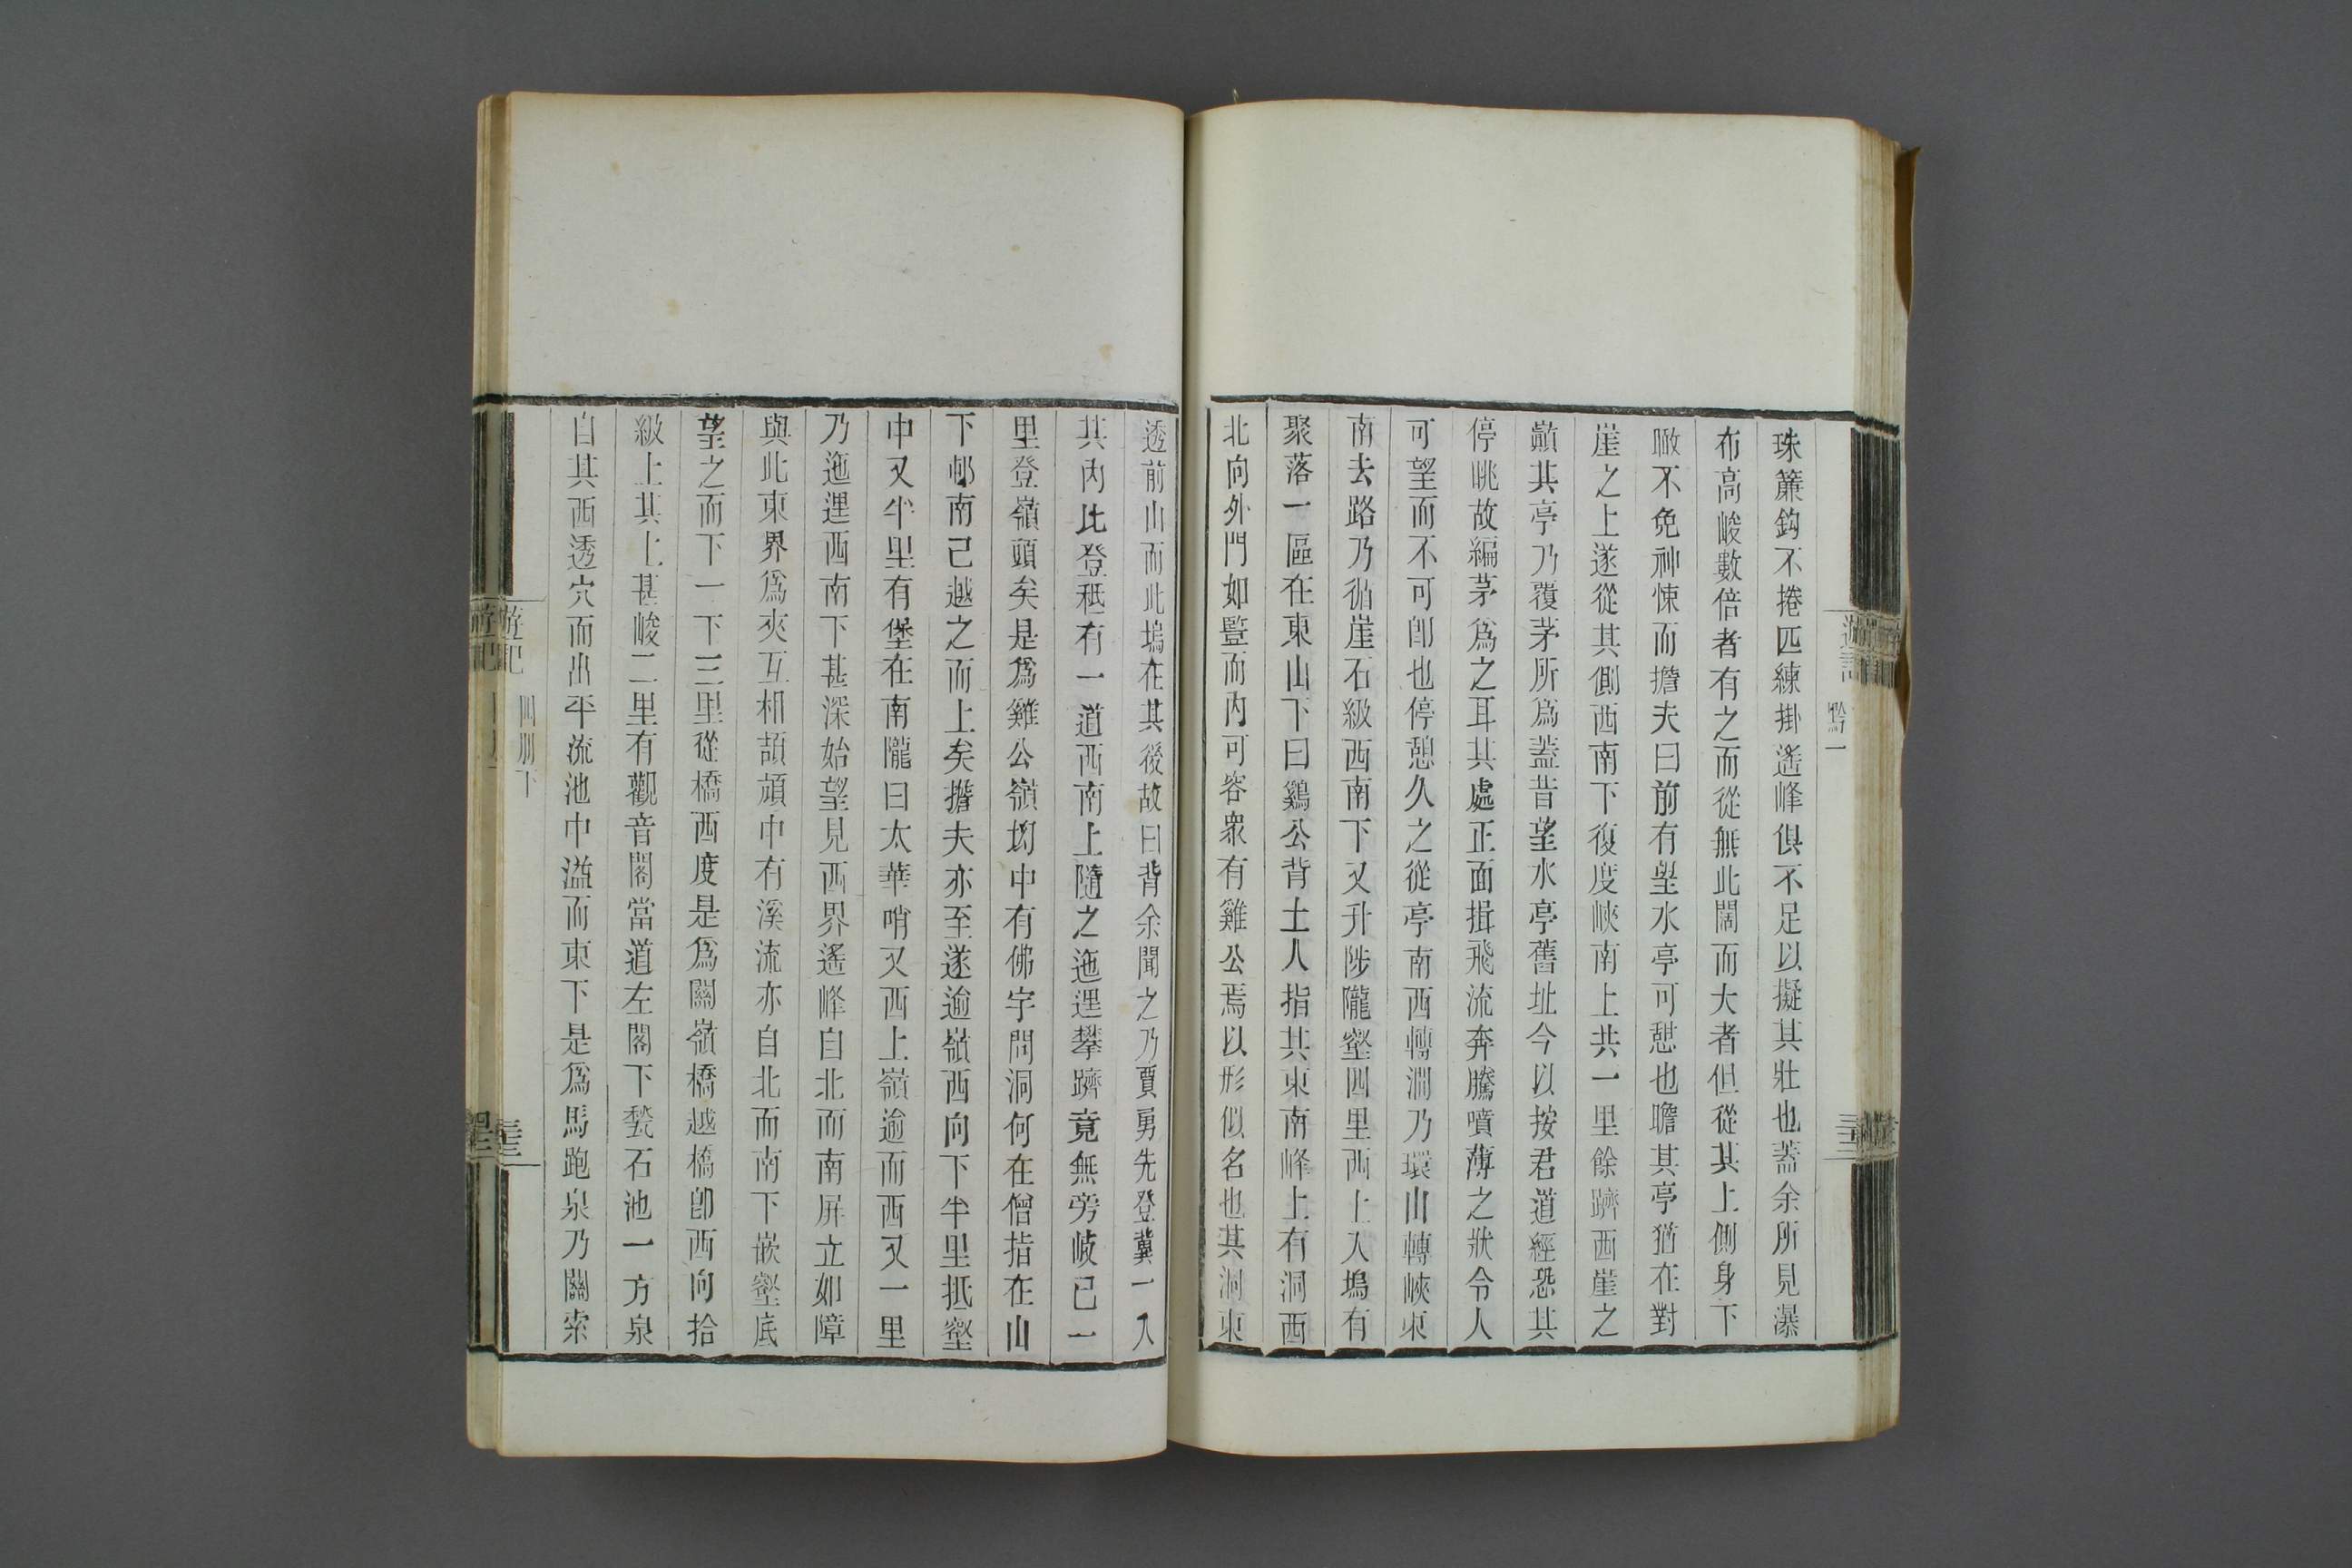 遊記
黔一
珠簾鈎不捲匹練掛遙峰俱不足以擬其壯也蓋余所見瀑
布高峻數倍者有之而從無此闊而大者但從其上側身下
瞰不免神悚而擔夫曰前有望水亭可憩也瞻其亭猶在對
崖之上遂從其側西南下復度峽南上共一里餘躋西崖之
巔其亭乃覆茅所爲蓋昔望水亭舊址今以按君道經恐其
停眺故編茅爲之耳其處正面揖飛流奔騰噴薄之狀令人
可望而不可卽也停憩久之從亭南西轉澗乃環山轉峽東
南去路乃循崖石級西南下又升陟隴壑四里西上入塢有
聚落一區在東山下曰鷄公背土人指其東南峰上有洞西
北向外門如豎而內可容衆有雞公焉以形似名也其洞東
透前山而此塢在其後故曰背余聞之乃賈勇先登冀一入
其內比登秪有一道西南上隨之迤邐攀躋竟無旁岐已一
里登嶺頭矣是爲雞公嶺坳中有佛宇問洞何在僧指在山
下邨南已越之而上矣擔夫亦至遂逾嶺西向下半里抵壑
中又半里有堡在南隴曰太華哨又西上嶺逾而西又一里
乃迤邐西南下甚深始望見西界遙峰自北而南屏立如障
與此東界爲夾互相頡頏中有溪流亦自北而南下嵌壑底
望之而下一下三里從橋西度是爲關嶺橋越橋卽西向拾
級上其上甚峻二里有觀音閣當道左閣下甃石池一方泉
自其西透穴而出平流池中溢而東下是爲馬跑泉乃關索
遊記
四册下